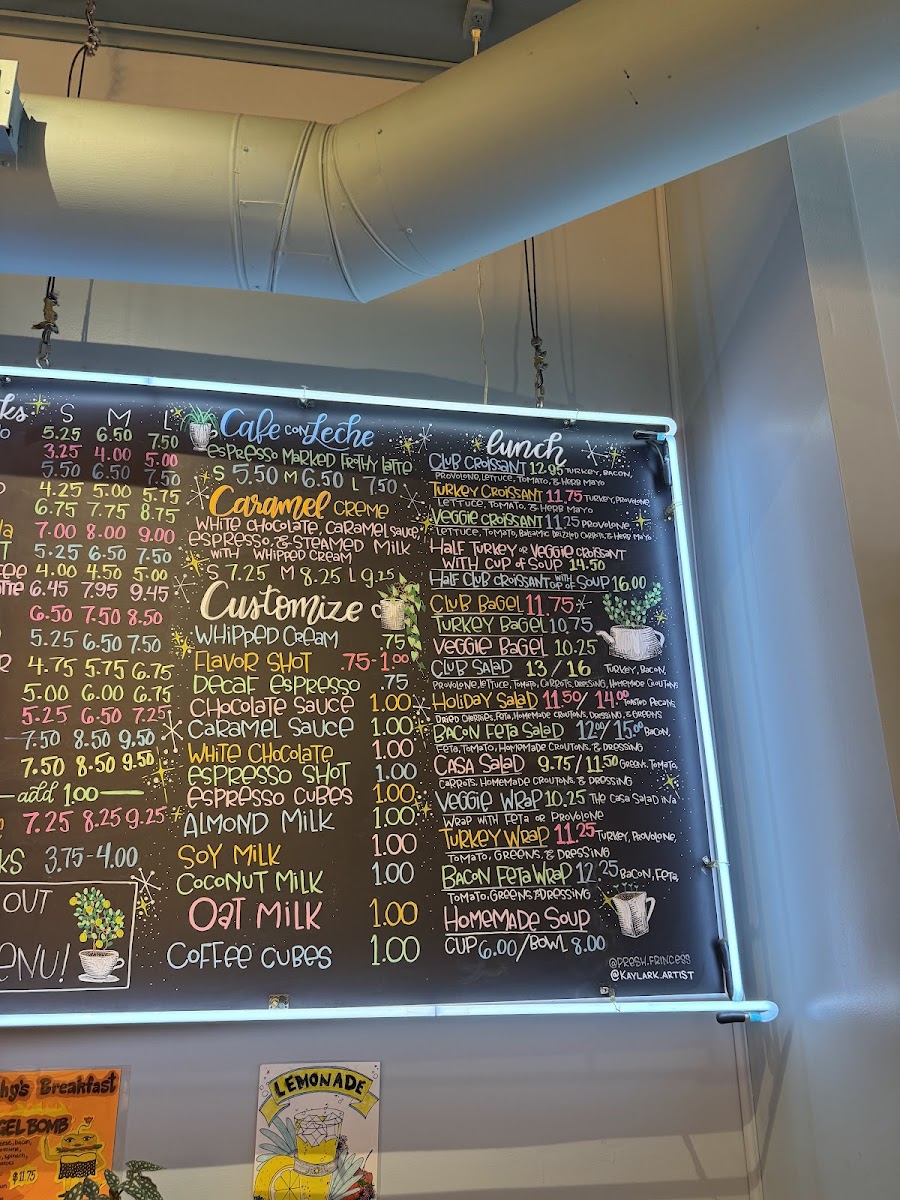 ks S M L
5.25 6.50 7.50
3.25 4.00 5.00
5.50 6.50 7.50
4.25 5.00 5.75
6.75 7.75 8.75
7.00 8.00 9.00
5.25 6.50 7.50
4.00 4.50 5.00
6.45 7.95 9.45
6.50 7.50 8.50
5.25 6.50 7.50
4.75 5.75 6.75
5.00 6.00 6.75
5.25 6.50 7.25
7.50 8.50 9.50
7.50 8.50 9.50
add 1.00
7.25 8.25 9.25
KS 3.75-4.00
OUT
ENU!
Cafe con Leche
ESPRESSO MARKED FROTHY LATTE
S 5.50 M 6.50 L 7.50
Caramel CREME
WHITE CHOCOLATE, CARAMEL SAUCE,
ESPRESSO, & STEAMED MILK
WITH WHIPPED CREAM
S 7.25 M 8.25 L 9.25
Customize
WHIPPED CREAM .75
FLAVOR SHOT .75-1.00
DECAF ESPRESSO .75
CHOCOLATE SAUCE 1.00
CARAMEL SAUCE 1.00
WHITE CHOCOLATE 1.00
ESPRESSO SHOT 1.00
ESPRESSO CUBES 1.00
ALMOND MILK 1.00
SOY MILK 1.00
COCONUT MILK 1.00
OAT MILK 1.00
COFFEE CUBES 1.00
lunch
CLUB CROISSANT 12.95 TURKEY, BACON,
PROVOLONE, LETTUCE, TOMATO, & HERB MAYO
TURKEY CROISSANT 11.75 TURKEY, PROVOLONE,
LETTUCE, TOMATO, & HERB MAYO
VEGGIE CROISSANT 11.25 PROVOLONE,
LETTUCE, TOMATO, BALSAMIC DRIZZLED CARROTS, & HERB MAYO
HALF TURKEY OR VEGGIE CROISSANT
WITH CUP OF SOUP 14.50
HALF CLUB CROISSANT WITH CUP OF SOUP 16.00
CLUB BAGEL 11.75
TURKEY BAGEL 10.75
VEGGIE BAGEL 10.25
CLUB SALAD 13/16 TURKEY, BACON,
PROVOLONE, LETTUCE, TOMATO, CARROTS, DRESSING, HOMEMADE CROUTONS
HOLIDAY SALAD 11.50/14.00 TOASTED PECANS,
DRIED CHERRIES, FETA, HOMEMADE CROUTONS, DRESSING, & GREENS
BACON FETA SALAD 12.00/15.00 BACON,
FETA, TOMATO, HOMEMADE CROUTONS, & DRESSING
CASA SALAD 9.75/11.50 GREENS, TOMATO,
CARROTS, HOMEMADE CROUTONS, & DRESSING
VEGGIE WRAP 10.25 THE CASA SALAD IN A
WRAP WITH FETA OR PROVOLONE
TURKEY WRAP 11.25 TURKEY, PROVOLONE,
TOMATO, GREENS, & DRESSING
BACON FETA WRAP 12.25 BACON, FETA,
TOMATO, GREENS, & DRESSING
HOMEMADE SOUP
CUP 6.00/BOWL 8.00
@PRESH.FRINCESS
@KAYLARK.ARTIST
hy's Breakfast
GEL BOMB
$11.75
LEMONADE